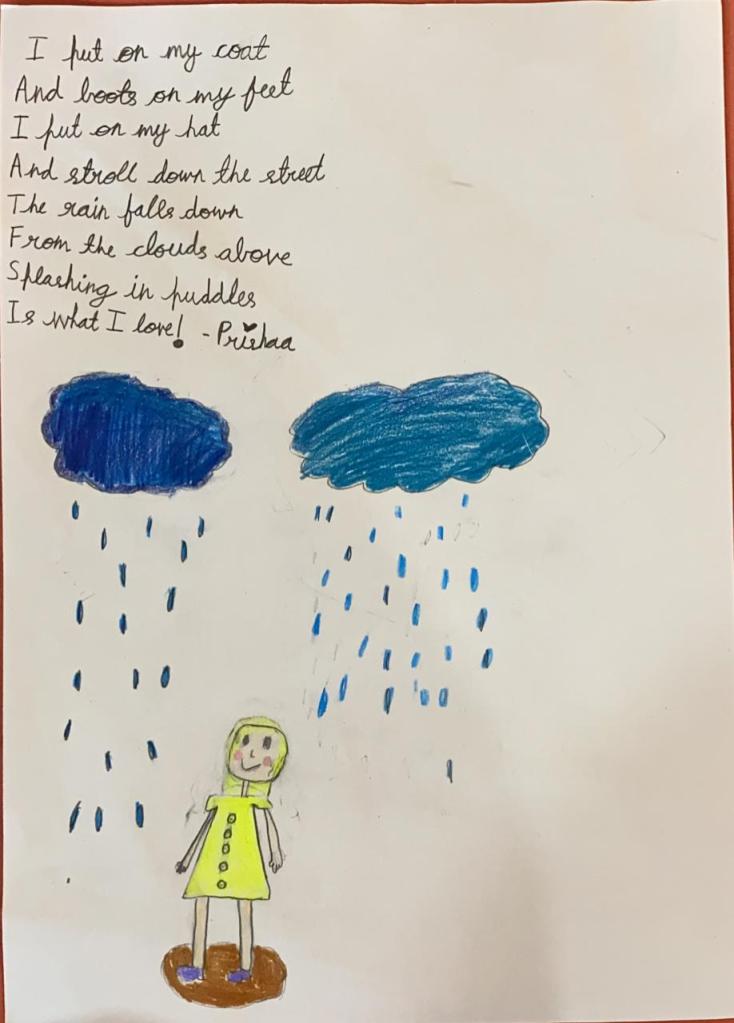 I put on my coat
And boots on my feet
I put on my hat
And stroll down the street
The rain falls down
From the clouds above
Splashing in puddles
Is what I love! -Prishaa